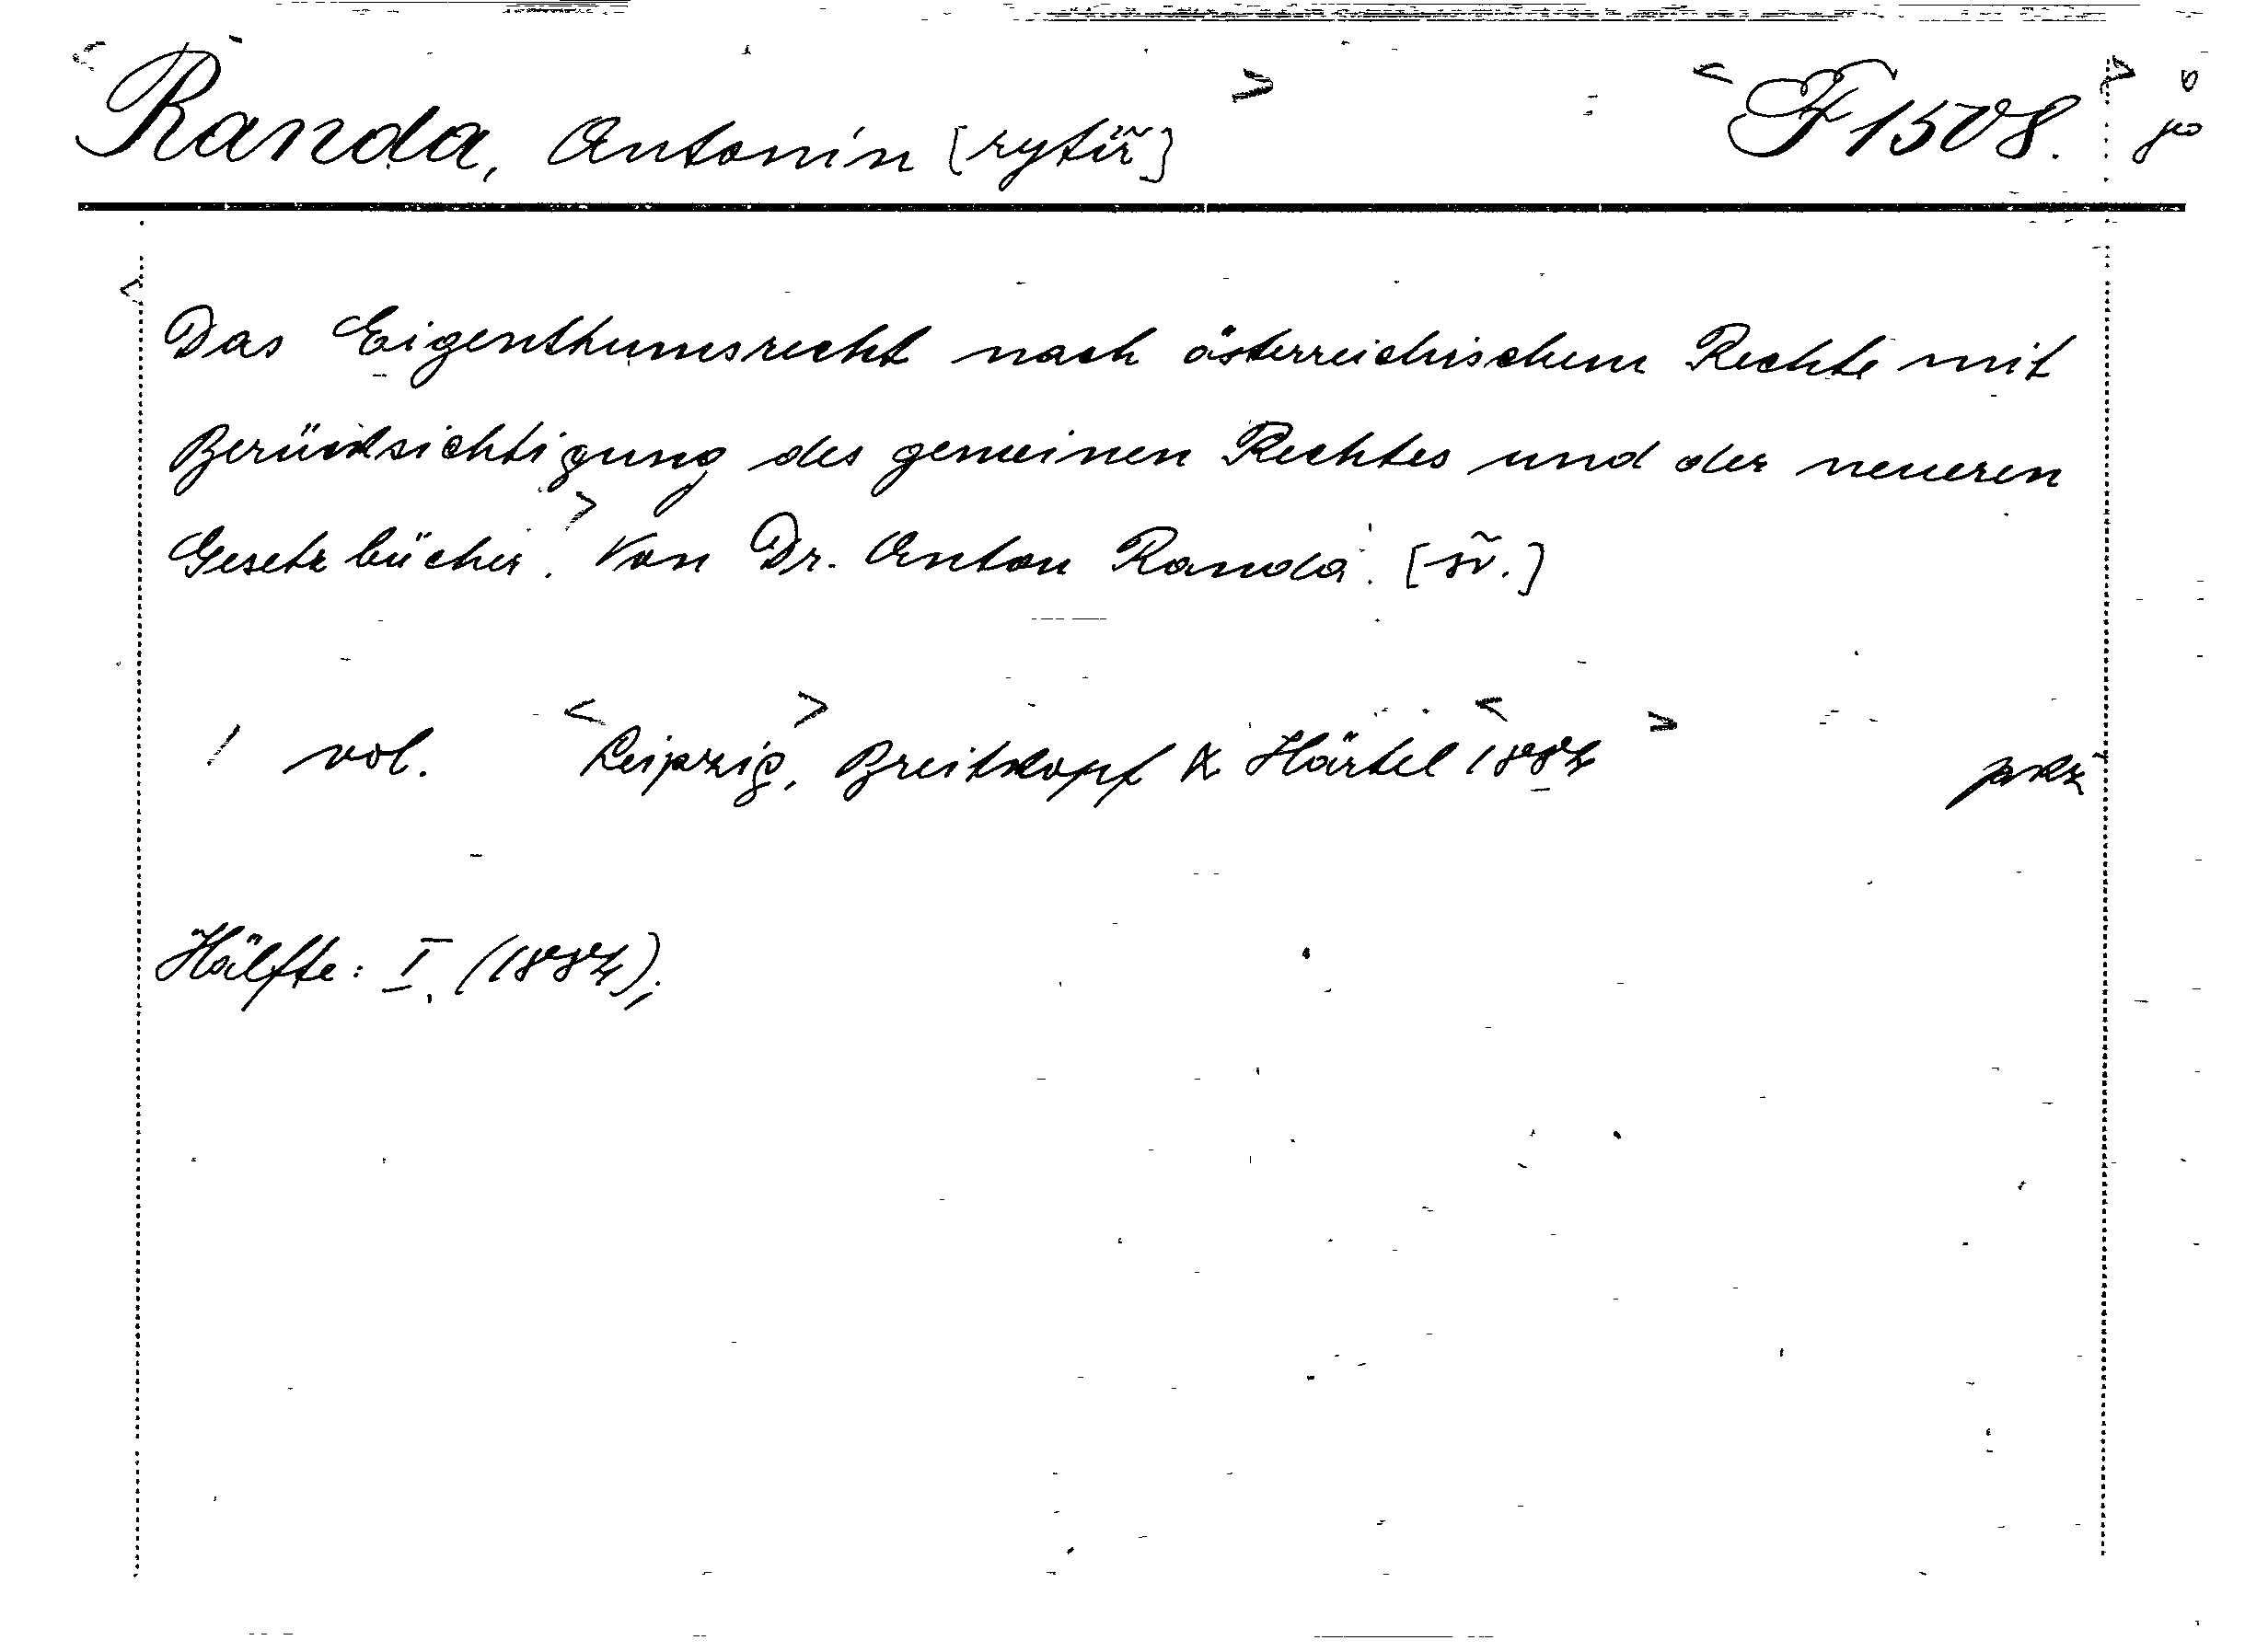 <Randa, Antonín [rytíř]> <F 1508.>
Das Eigenthumsrecht nach österreichischem Rechte mit
Berücksichtigung des gemeinen Rechtes und der neueren
Gesetzbücher.> Von Dr. Anton Randa. [sv.]
1 vol. <Leipzig,> Breitkopf & Härtel <1884>
Hälfte: I. (1884),